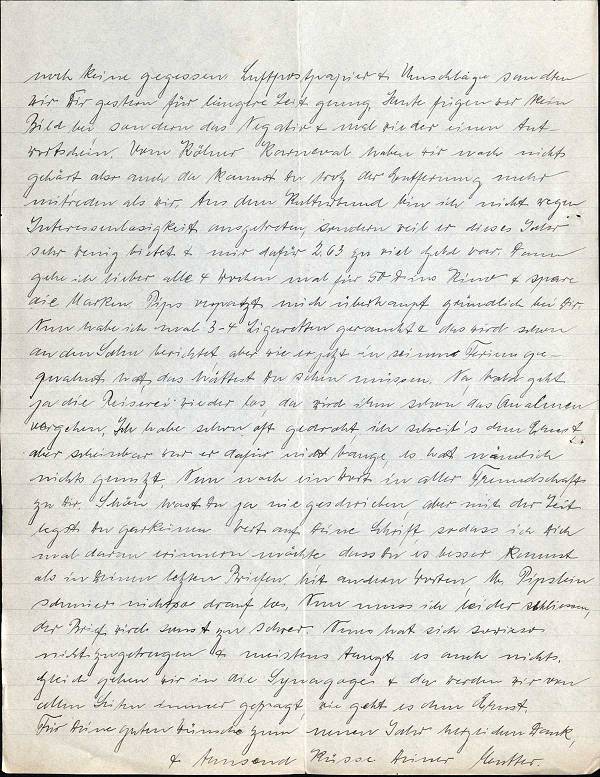 noch keine gegessen. Luftpostpapier & Umschläge sandten
wir Dir gestern für längere Zeit genug. Heute fügen wir kein
Bild bei sondern das Negativ & mal wieder einen Ant-
wortschein. Vom Kölner Karneval haben wir noch nichts
gehört also auch da kannst Du trotz der Entfernung mehr
mitreden als wir. Aus dem Kulturbund bin ich nicht wegen
Interessenlosigkeit ausgetreten, sondern weil er dieses Jahr
sehr wenig bietet & mir dafür 2,63 zu viel Geld war. Dann
gehe ich lieber alle 4 Wochen mal für 50 ins Kino & spare
die Marken. Pips verpatzt mich überhaupt gründlich bei Dir.
Nun habe ich mal 3-4 Zigaretten geraucht & das wird schon
an den Sohn berichtet aber wie er jetzt in seinen Ferien ge-
qualmt hat, das hättest Du sehen müssen. Na bald geht
ja die Reiserei wieder los, da wird ihm schon das Qualmen
vergehen. Ich habe schon oft gedroht, ich schreib's dem Ernst
aber scheinbar war er dafür nicht bange, es hat nämlich
nichts genutzt. Nun noch ein Wort in aller Freundschaft
zu Dir. Schön hast Du ja nie geschrieben aber mit der Zeit
legst Du garkeinen Wert auf Deine Schrift sodass ich Dich
mal daran erinnern möchte dass Du es besser kannst
als in Deinen letzten Briefen. Mit andern Worten, Pipslein
schmier nicht so drauf los. Nun muss ich leider schliessen,
der Brief wird sonst zu schwer. Neues hat sich sowieso
nicht zugetragen & meistens taugt es auch nichts.
Gleich gehen wir in die Synagoge & da werden wir von
allen Seiten immer gefragt, wie geht es dem Ernst.
Für Deine guten Wünsche zum neuen Jahr herzlichen Dank,
& tausend Küsse Deiner Mutter.